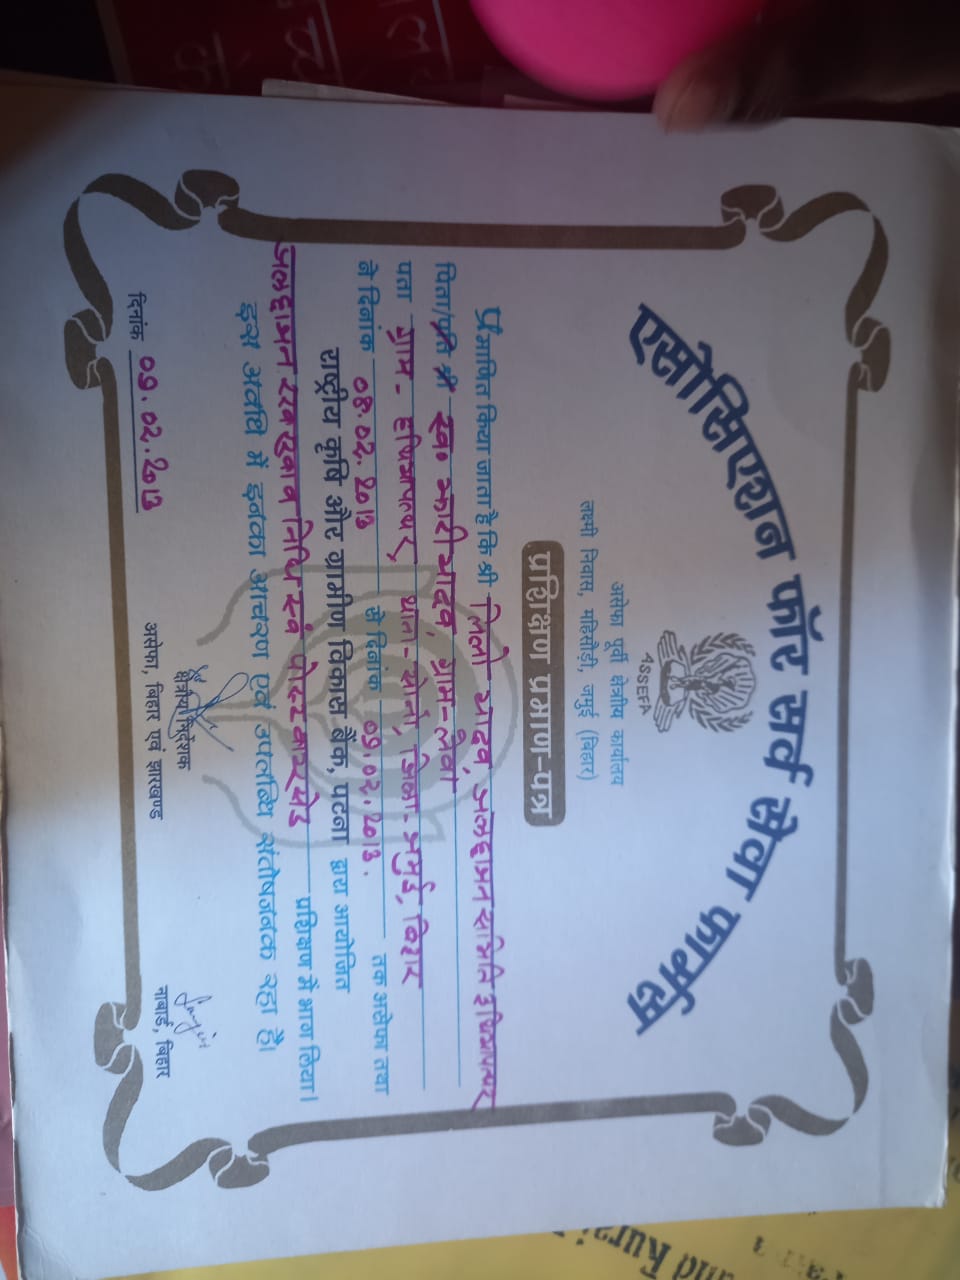 एसोसिएशन फॉर सर्व सेवा फार्मस
ASSEFA
असेफा पूर्वी क्षेत्रीय कार्यालय
लक्ष्मी निवास, महिसौड़ी, जमुई (बिहार)
प्रशिक्षण प्रमाण-पत्र
प्रमाणित किया जाता है कि श्री मिलो यादव, जलछाजन समिति
पिता/पति श्री स्व० यादव ग्राम-
पता ग्राम- थाना-सोनो, जिला-जमुई, बिहार
ने दिनांक 08.02.2013 से दिनांक 09.02.2013. तक असेफा तथा
राष्ट्रीय कृषि और ग्रामीण विकास बैंक, पटना द्वारा आयोजित
जलछाजन रख रखाव निधि एवं प्रशिक्षण में भाग लिया।
इस अवधि में इनका आचरण एवं उपलब्धि संतोषजनक रहा है।
दिनांक 09.02.2013
क्षेत्रीय निदेशक
असेफा, बिहार एवं झारखण्ड
नाबार्ड, बिहार
and Rural